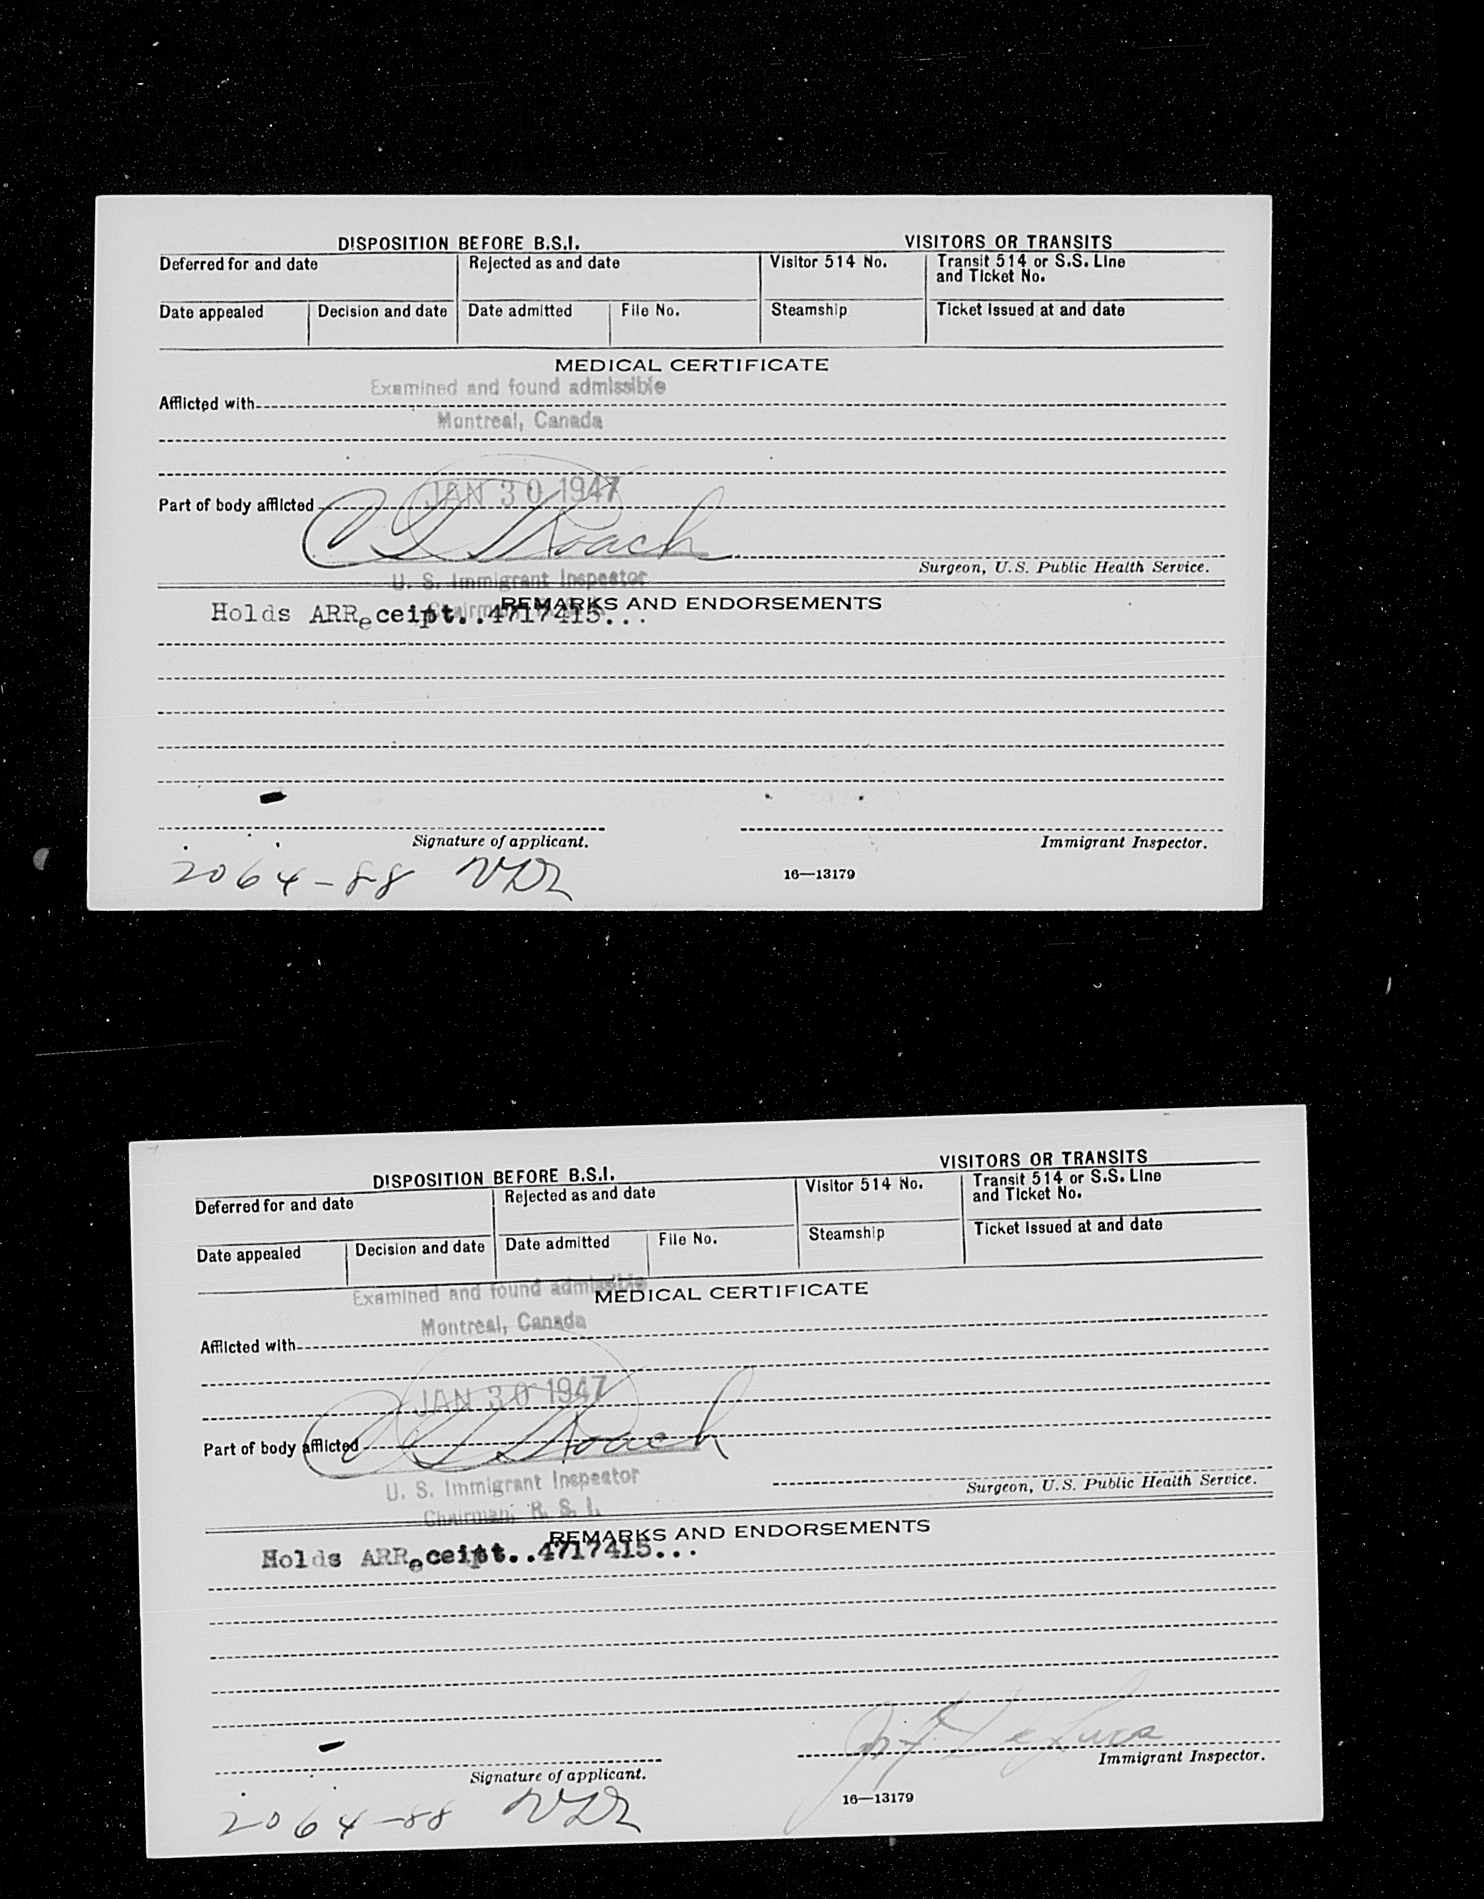 DISPOSITION BEFORE B.S.I. VISITORS OR TRANSITS
Deferred for and date Rejected as and date Visitor 514 No. Transit 514 or S.S. Line
and Ticket No.
Date appealed Decision and date Date admitted File No. Steamship Ticket issued at and date
MEDICAL CERTIFICATE
Examined and found admissible
Afflicted with
Montreal, Canada
JAN 30 1947
Part of body afflicted
Roach
Surgeon, U.S. Public Health Service.
U. S. Immigrant Inspector
Chairman
REMARKS AND ENDORSEMENTS
Holds ARReceipt..4717415...
Signature of applicant. Immigrant Inspector.
2064-88
16—13179
DISPOSITION BEFORE B.S.I. VISITORS OR TRANSITS
Deferred for and date Rejected as and date Visitor 514 No. Transit 514 or S.S. Line
and Ticket No.
Date appealed Decision and date Date admitted File No. Steamship Ticket issued at and date
Examined and found admissible
MEDICAL CERTIFICATE
Montreal, Canada
Afflicted with
JAN 30 1947
Part of body afflicted
Roach
U. S. Immigrant Inspector
Surgeon, U.S. Public Health Service.
Chairman, B. S. I.
REMARKS AND ENDORSEMENTS
Holds ARReceipt..4717415...
De Luca
Signature of applicant. Immigrant Inspector.
2064-88
16—13179